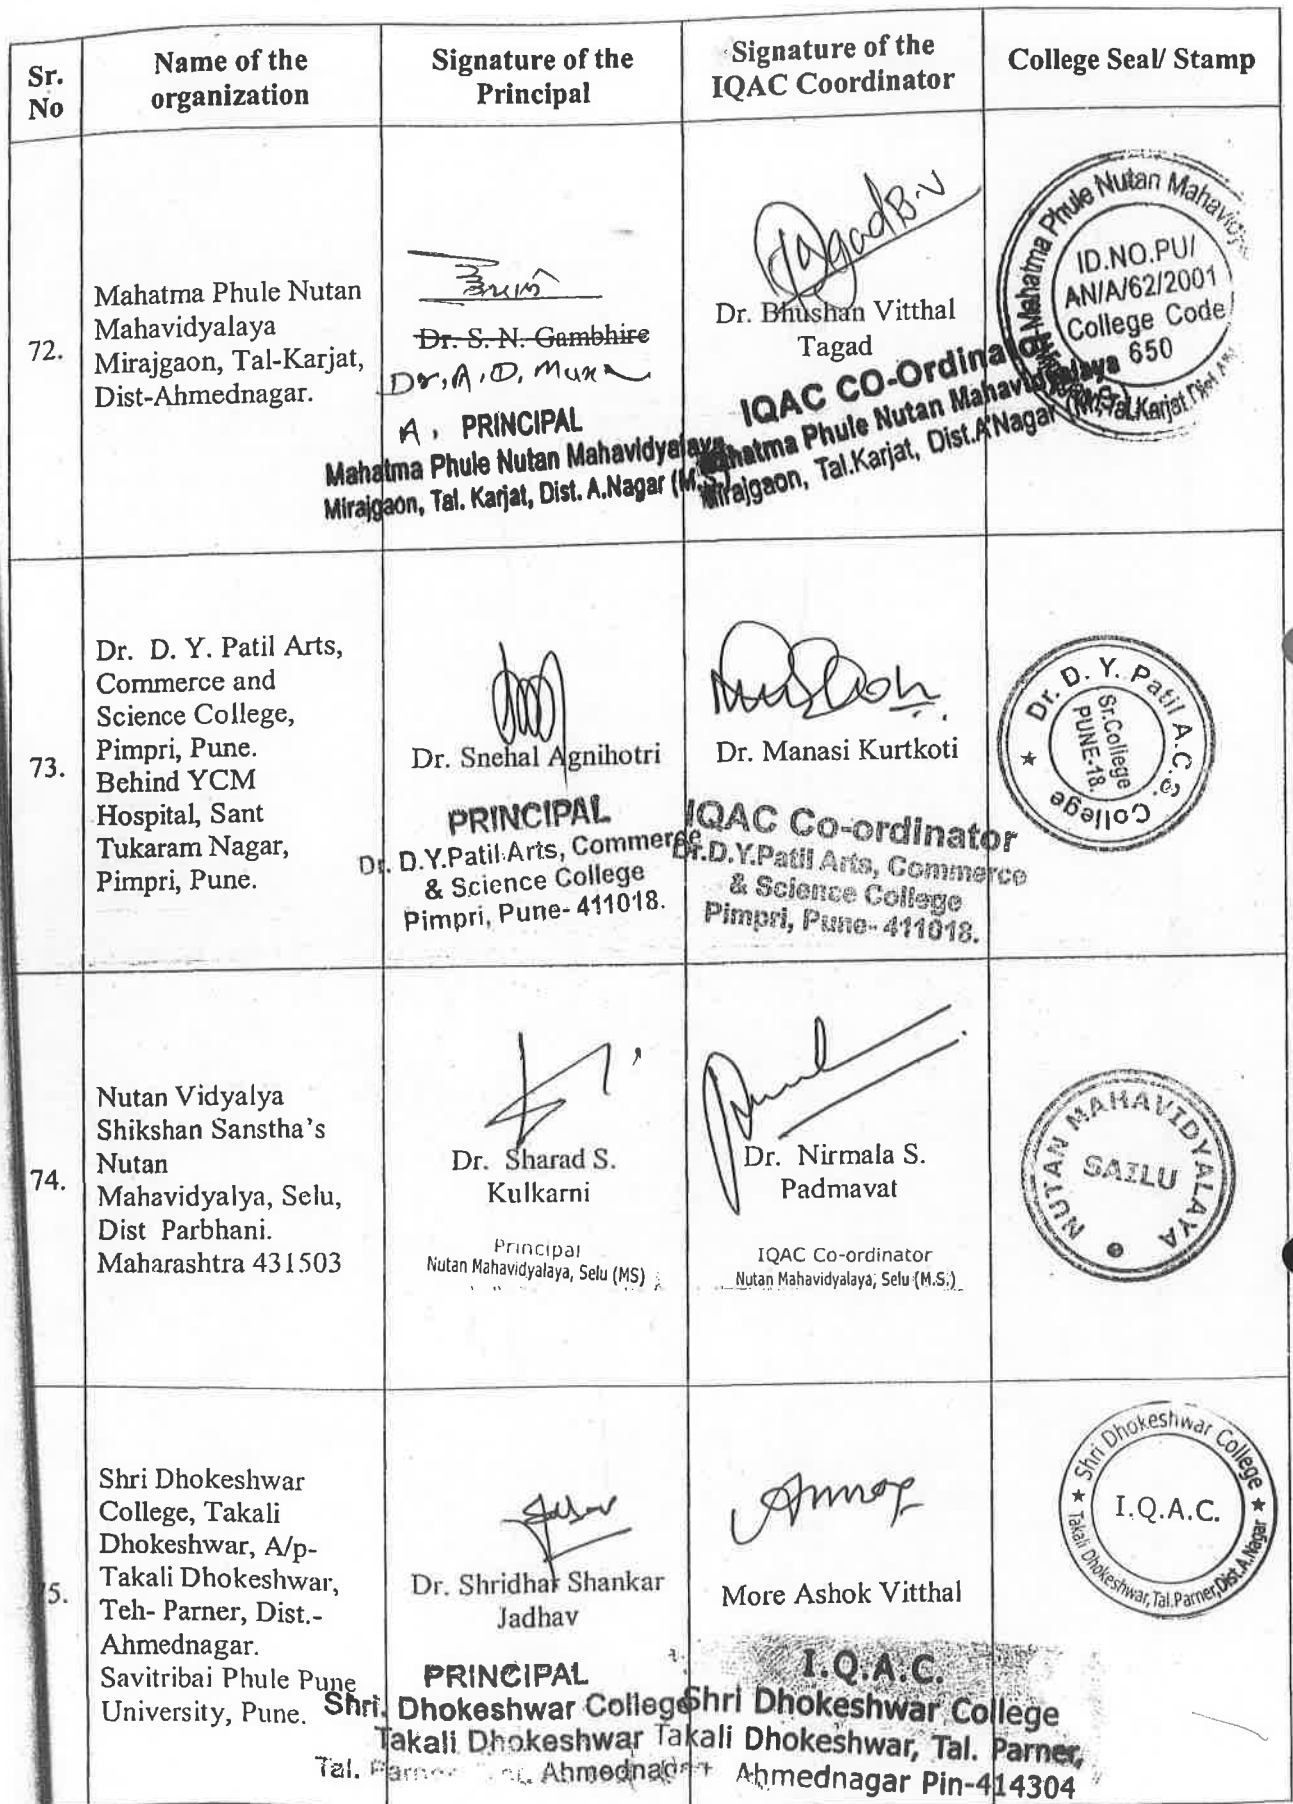 Sr.
No
Name of the
organization
Signature of the
Principal
Signature of the
IQAC Coordinator
College Seal/ Stamp
72.
Mahatma Phule Nutan
Mahavidyalaya
Mirajgaon, Tal-Karjat,
Dist-Ahmednagar.
Dr. S. N. Gambhire
Dr. A. D.
A. PRINCIPAL
Mahatma Phule Nutan Mahavidyalaya
Mirajgaon, Tal. Karjat, Dist. A.Nagar (M.S.)
Tagad B.V
Dr. Bhushan Vitthal
Tagad
IQAC CO-Ordinator
Mahatma Phule Nutan Mahavidyalaya
Mirajgaon, Tal.Karjat, Dist.A'Nagar
Mahatma Phule Nutan
ID.NO.PU/
AN/A/62/2001
College Code
650
Tal.Karjat
73.
Dr. D. Y. Patil Arts,
Commerce and
Science College,
Pimpri, Pune.
Behind YCM
Hospital, Sant
Tukaram Nagar,
Pimpri, Pune.
Dr. Snehal Agnihotri
PRINCIPAL
Dr. D.Y.Patil Arts, Commerce
& Science College
Pimpri, Pune- 411018.
Dr. Manasi Kurtkoti
IQAC Co-ordinator
Dr.D.Y.Patil Arts, Commerce
& Science College
Pimpri, Pune- 411018.
Dr. D. Y. Patil A.C.S. College
Sr.College
PUNE-18.
74.
Nutan Vidyalya
Shikshan Sanstha's
Nutan
Mahavidyalya, Selu,
Dist Parbhani.
Maharashtra 431503
Dr. Sharad S.
Kulkarni
Principal
Nutan Mahavidyalaya, Selu (MS)
Dr. Nirmala S.
Padmavat
IQAC Co-ordinator
Nutan Mahavidyalaya, Selu (M.S.)
NUTAN MAHAVIDYALAYA
SAILU
5.
Shri Dhokeshwar
College, Takali
Dhokeshwar, A/p-
Takali Dhokeshwar,
Teh- Parner, Dist.-
Ahmednagar.
Savitribai Phule Pune
University, Pune.
Dr. Shridhar Shankar
Jadhav
PRINCIPAL
Shri. Dhokeshwar College
Takali Dhokeshwar
Tal. Parner Ahmednagar
More Ashok Vitthal
I.Q.A.C.
Shri Dhokeshwar College
Takali Dhokeshwar, Tal. Parner,
Ahmednagar Pin-414304
Shri Dhokeshwar College
I.Q.A.C.
Takali Dhokeshwar, Tal.Parner, Dist.A.Nagar